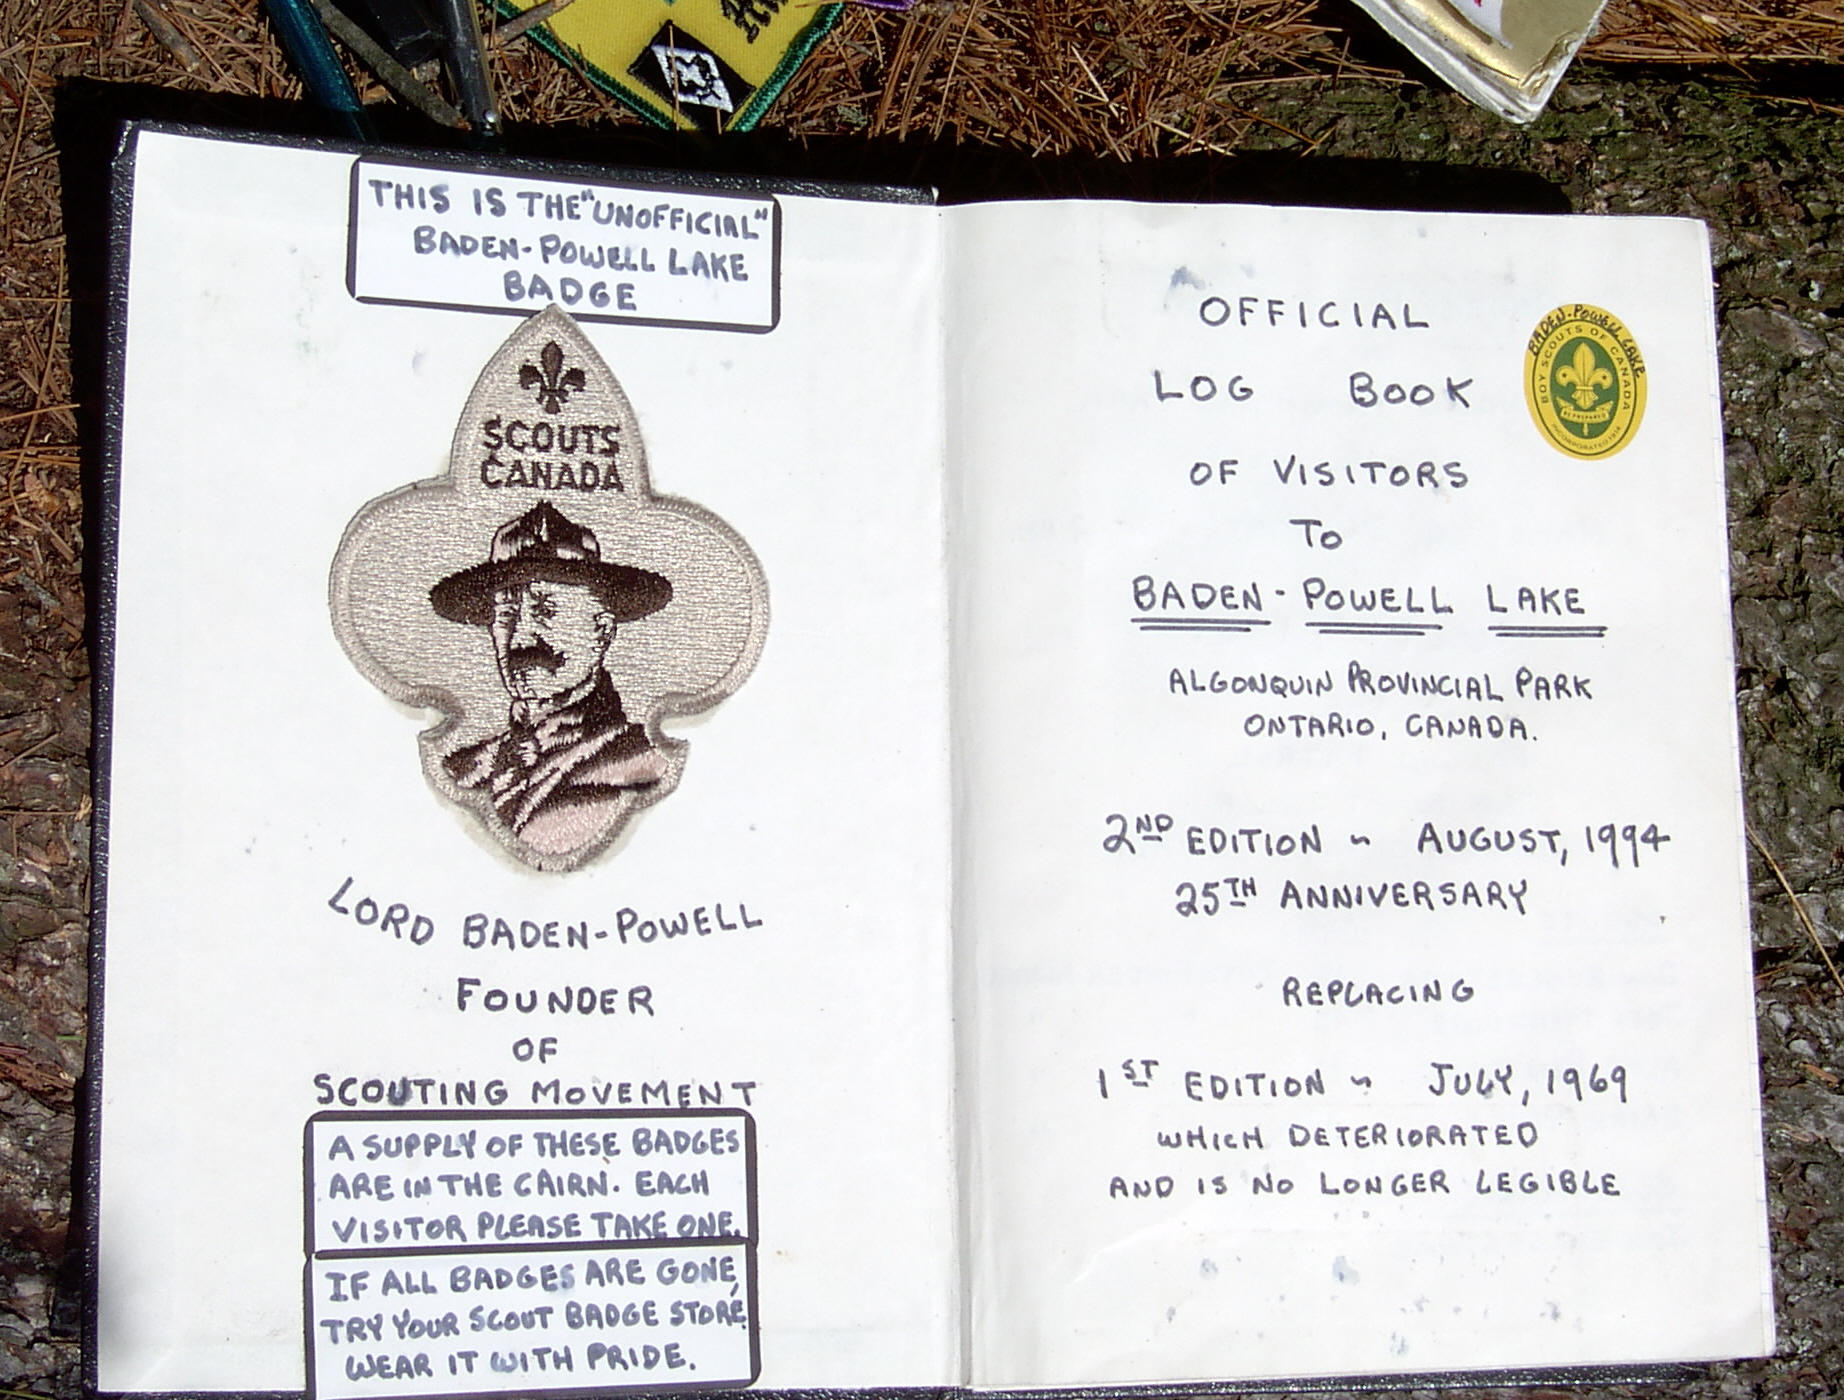 THIS IS THE "UNOFFICIAL"
BADEN-POWELL LAKE
BADGE
SCOUTS
CANADA
LORD BADEN-POWELL
FOUNDER
OF
SCOUTING MOVEMENT
A SUPPLY OF THESE BADGES
ARE IN THE CAIRN. EACH
VISITOR PLEASE TAKE ONE.
IF ALL BADGES ARE GONE,
TRY YOUR SCOUT BADGE STORE.
WEAR IT WITH PRIDE.
OFFICIAL
LOG BOOK
OF VISITORS
TO
BADEN-POWELL LAKE
ALGONQUIN PROVINCIAL PARK
ONTARIO, CANADA.
2ND EDITION ~ AUGUST, 1994
25TH ANNIVERSARY
REPLACING
1ST EDITION ~ JULY, 1969
WHICH DETERIORATED
AND IS NO LONGER LEGIBLE
BADEN-POWELL LAKE
BOY SCOUTS OF CANADA
BE PREPARED
INCORPORATED 1914